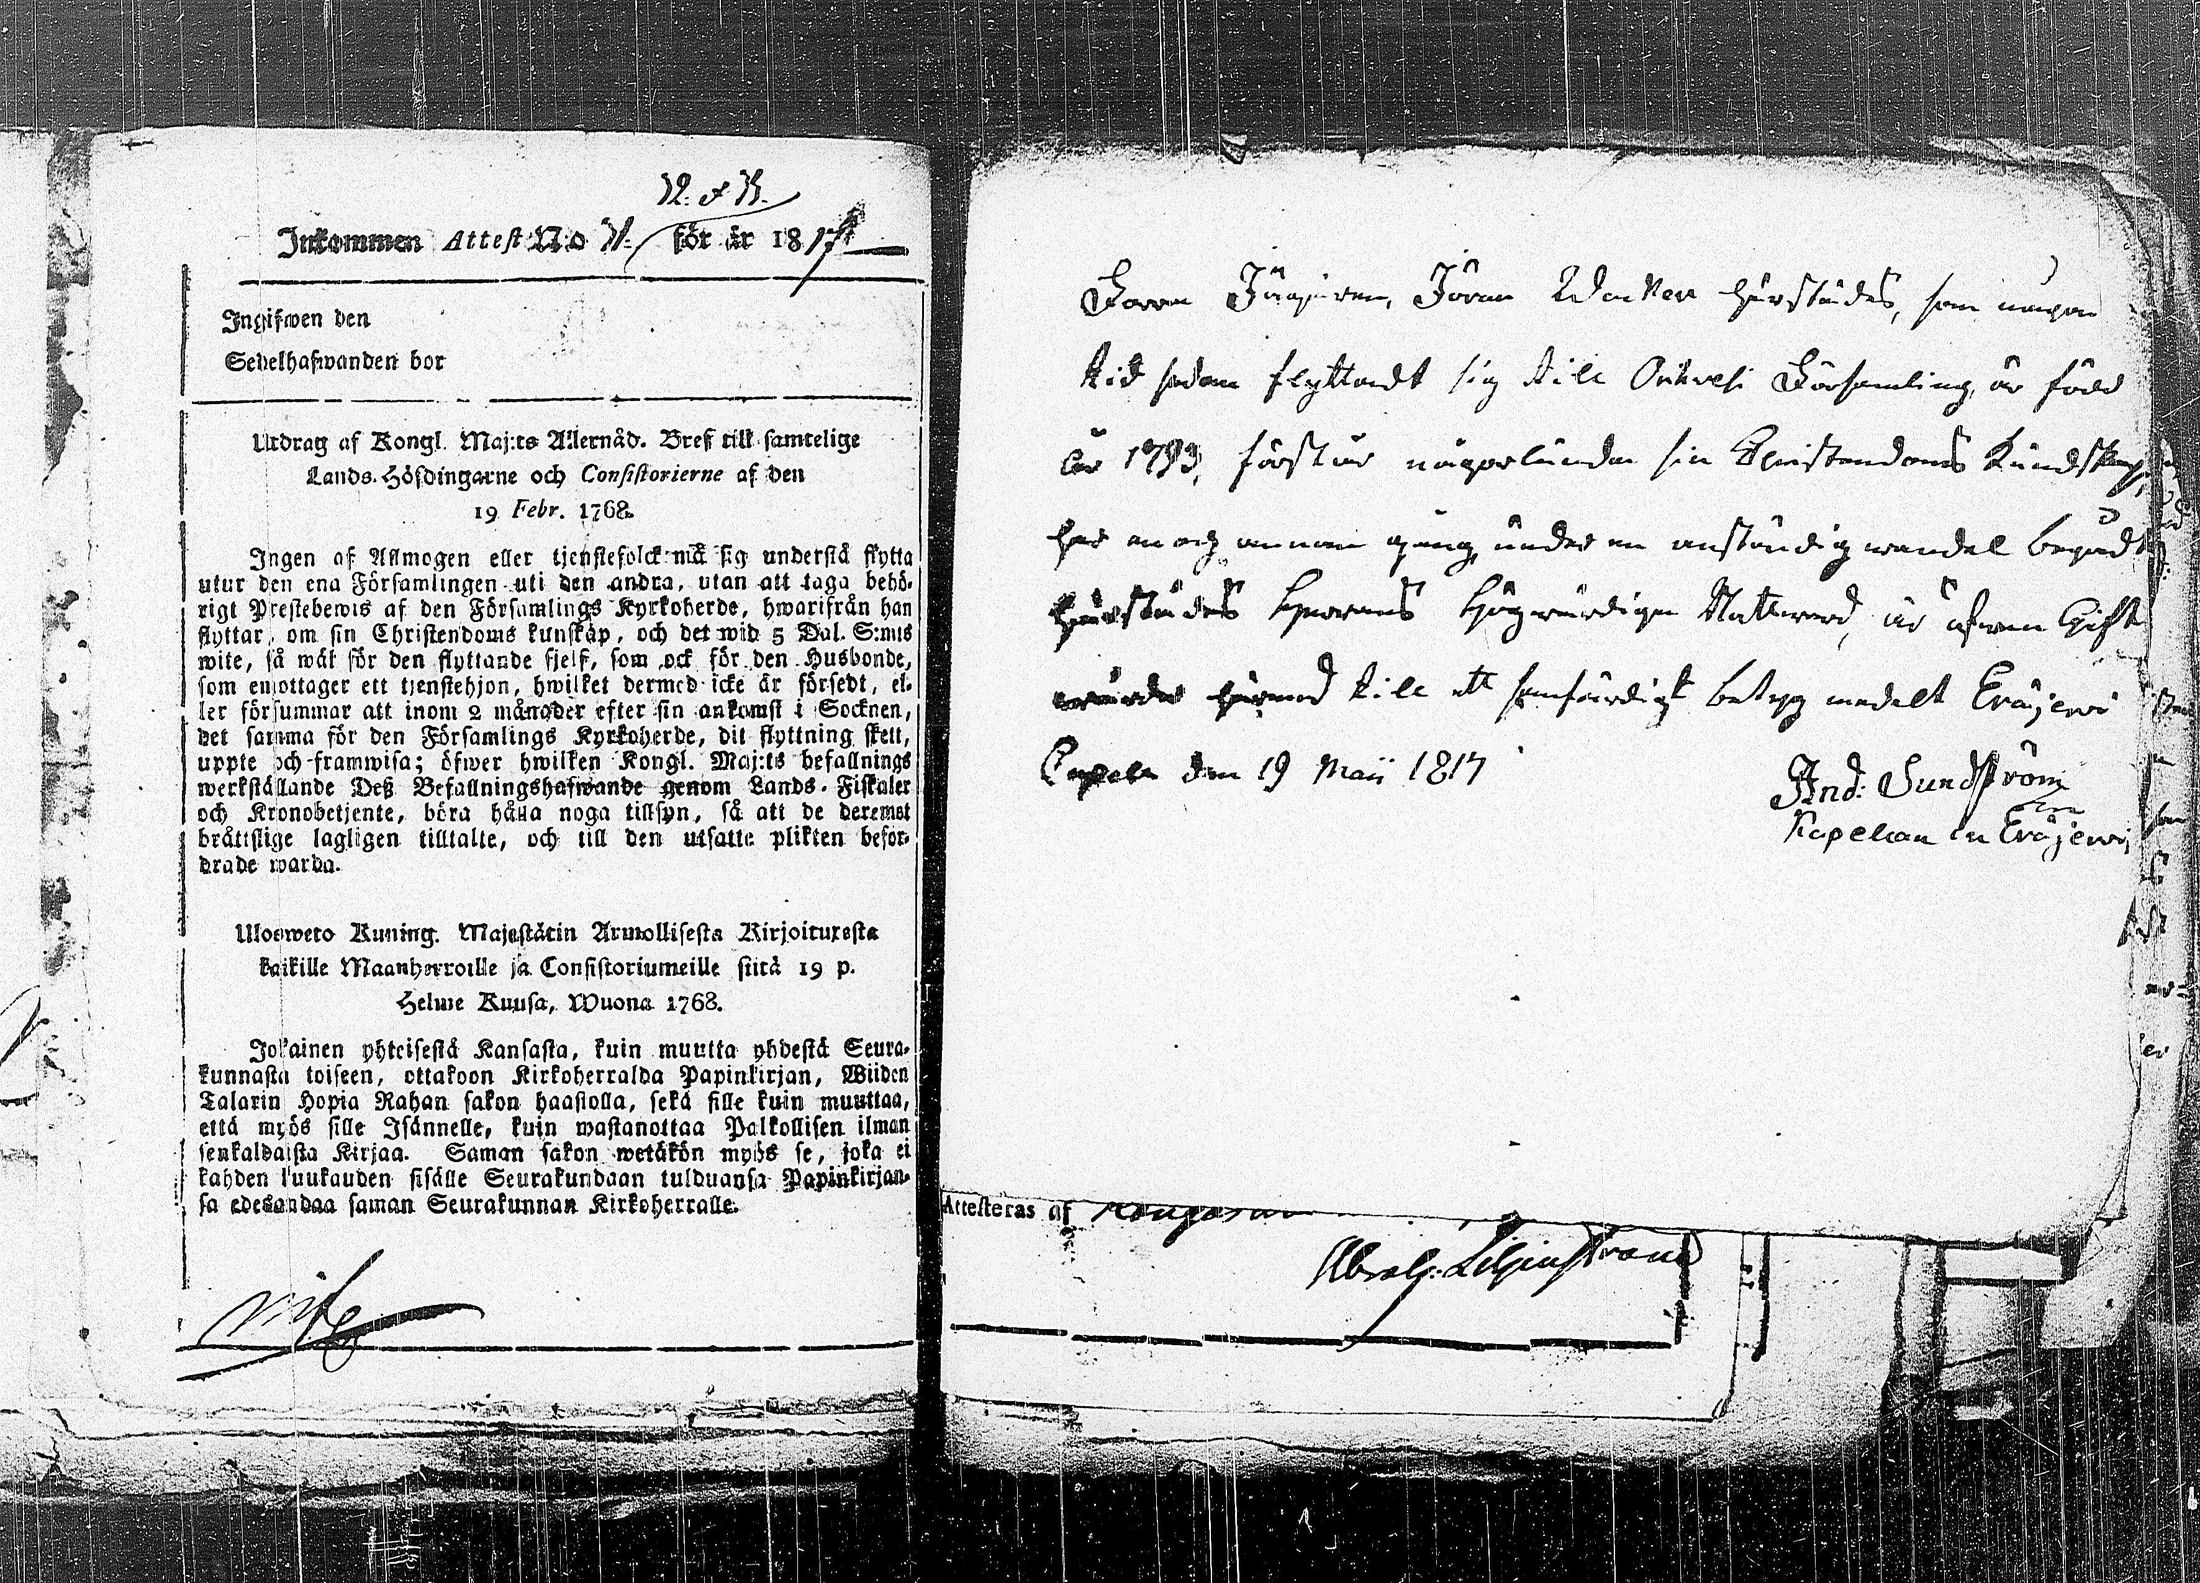 12. & 13.
Inkommen Attest No 11. för år 1817
Ingifwen den
Sedelhafwanden bor
Utdrag af Kongl. Maj:ts Allernåd. Bref till samtelige
Lands-Höfdingarne och Consistorierne af den
19 Febr. 1768.
Ingen af Allmogen eller tjenstefolck må sig understå flytta
utur den ena Församlingen uti den andra, utan att taga behö-
rigt Prestebewis af den Församlings Kyrkoherde, hwarifrån han
flyttar, om sin Christendoms kunskap, och det wid 5 Dal. S:mts
wite, så wäl för den flyttande sjelf, som ock för den Husbonde,
som emottager ett tjenstehjon, hwilket dermed icke är försedt, el-
ler försummar att inom 2 månader efter sin ankomst i Socknen,
det samma för den Församlings Kyrkoherde, dit flyttning skett,
uppte och framwisa; öfwer hwilken Kongl. Maj:ts befallnings
werkställande Deß Befallningshafwande genom Lands-Fiskaler
och Kronobetjente, böra hålla noga tillsyn, så att de deremot
bråttslige lagligen tilltalte, och till den utsatte plikten befor-
drade warda.
Ulosweto Kuning. Majestätin Armollisesta Kirjoituxesta
kaikille Maanherroille ja Consistoriumeille siitä 19 p.
Helme Kuusa, Wuona 1768.
Jokainen yhteisestä Kansasta, kuin muutta yhdestä Seura-
kunnasta toiseen, ottakoon Kirkoherralda Papinkirjan, Wiiden
Talarin Hopia Rahan sakon haastolla, sekä sille kuin muuttaa,
että myös sille Isännelle, kuin wastanottaa Palkollisen ilman
senkaldaista Kirjaa. Saman sakon wetäkön myös se, joka ei
kahden kuukauden sisälle Seurakundaan tulduansa Papinkirjan-
sa edesandaa saman Seurakunnan Kirkoherralle.
Göran härstädes, som någon
tid sedan flyttadt sig till Orihvesi Församling, är född
år 1793, förstår någorlunda sin Christendoms Kundskap,
har en och annan gång under en anständig wandel begådt
härstädes Herrans Högwürdiga Nattward, är äfwen Gift
härmed till ett sanfärdigt betyg medelt Eräjerwi
Capell den 19 Maii 1817
And: Sundström
Kapellan in Eräjerwi
Attesteras af
Abrah: Liljenstrand